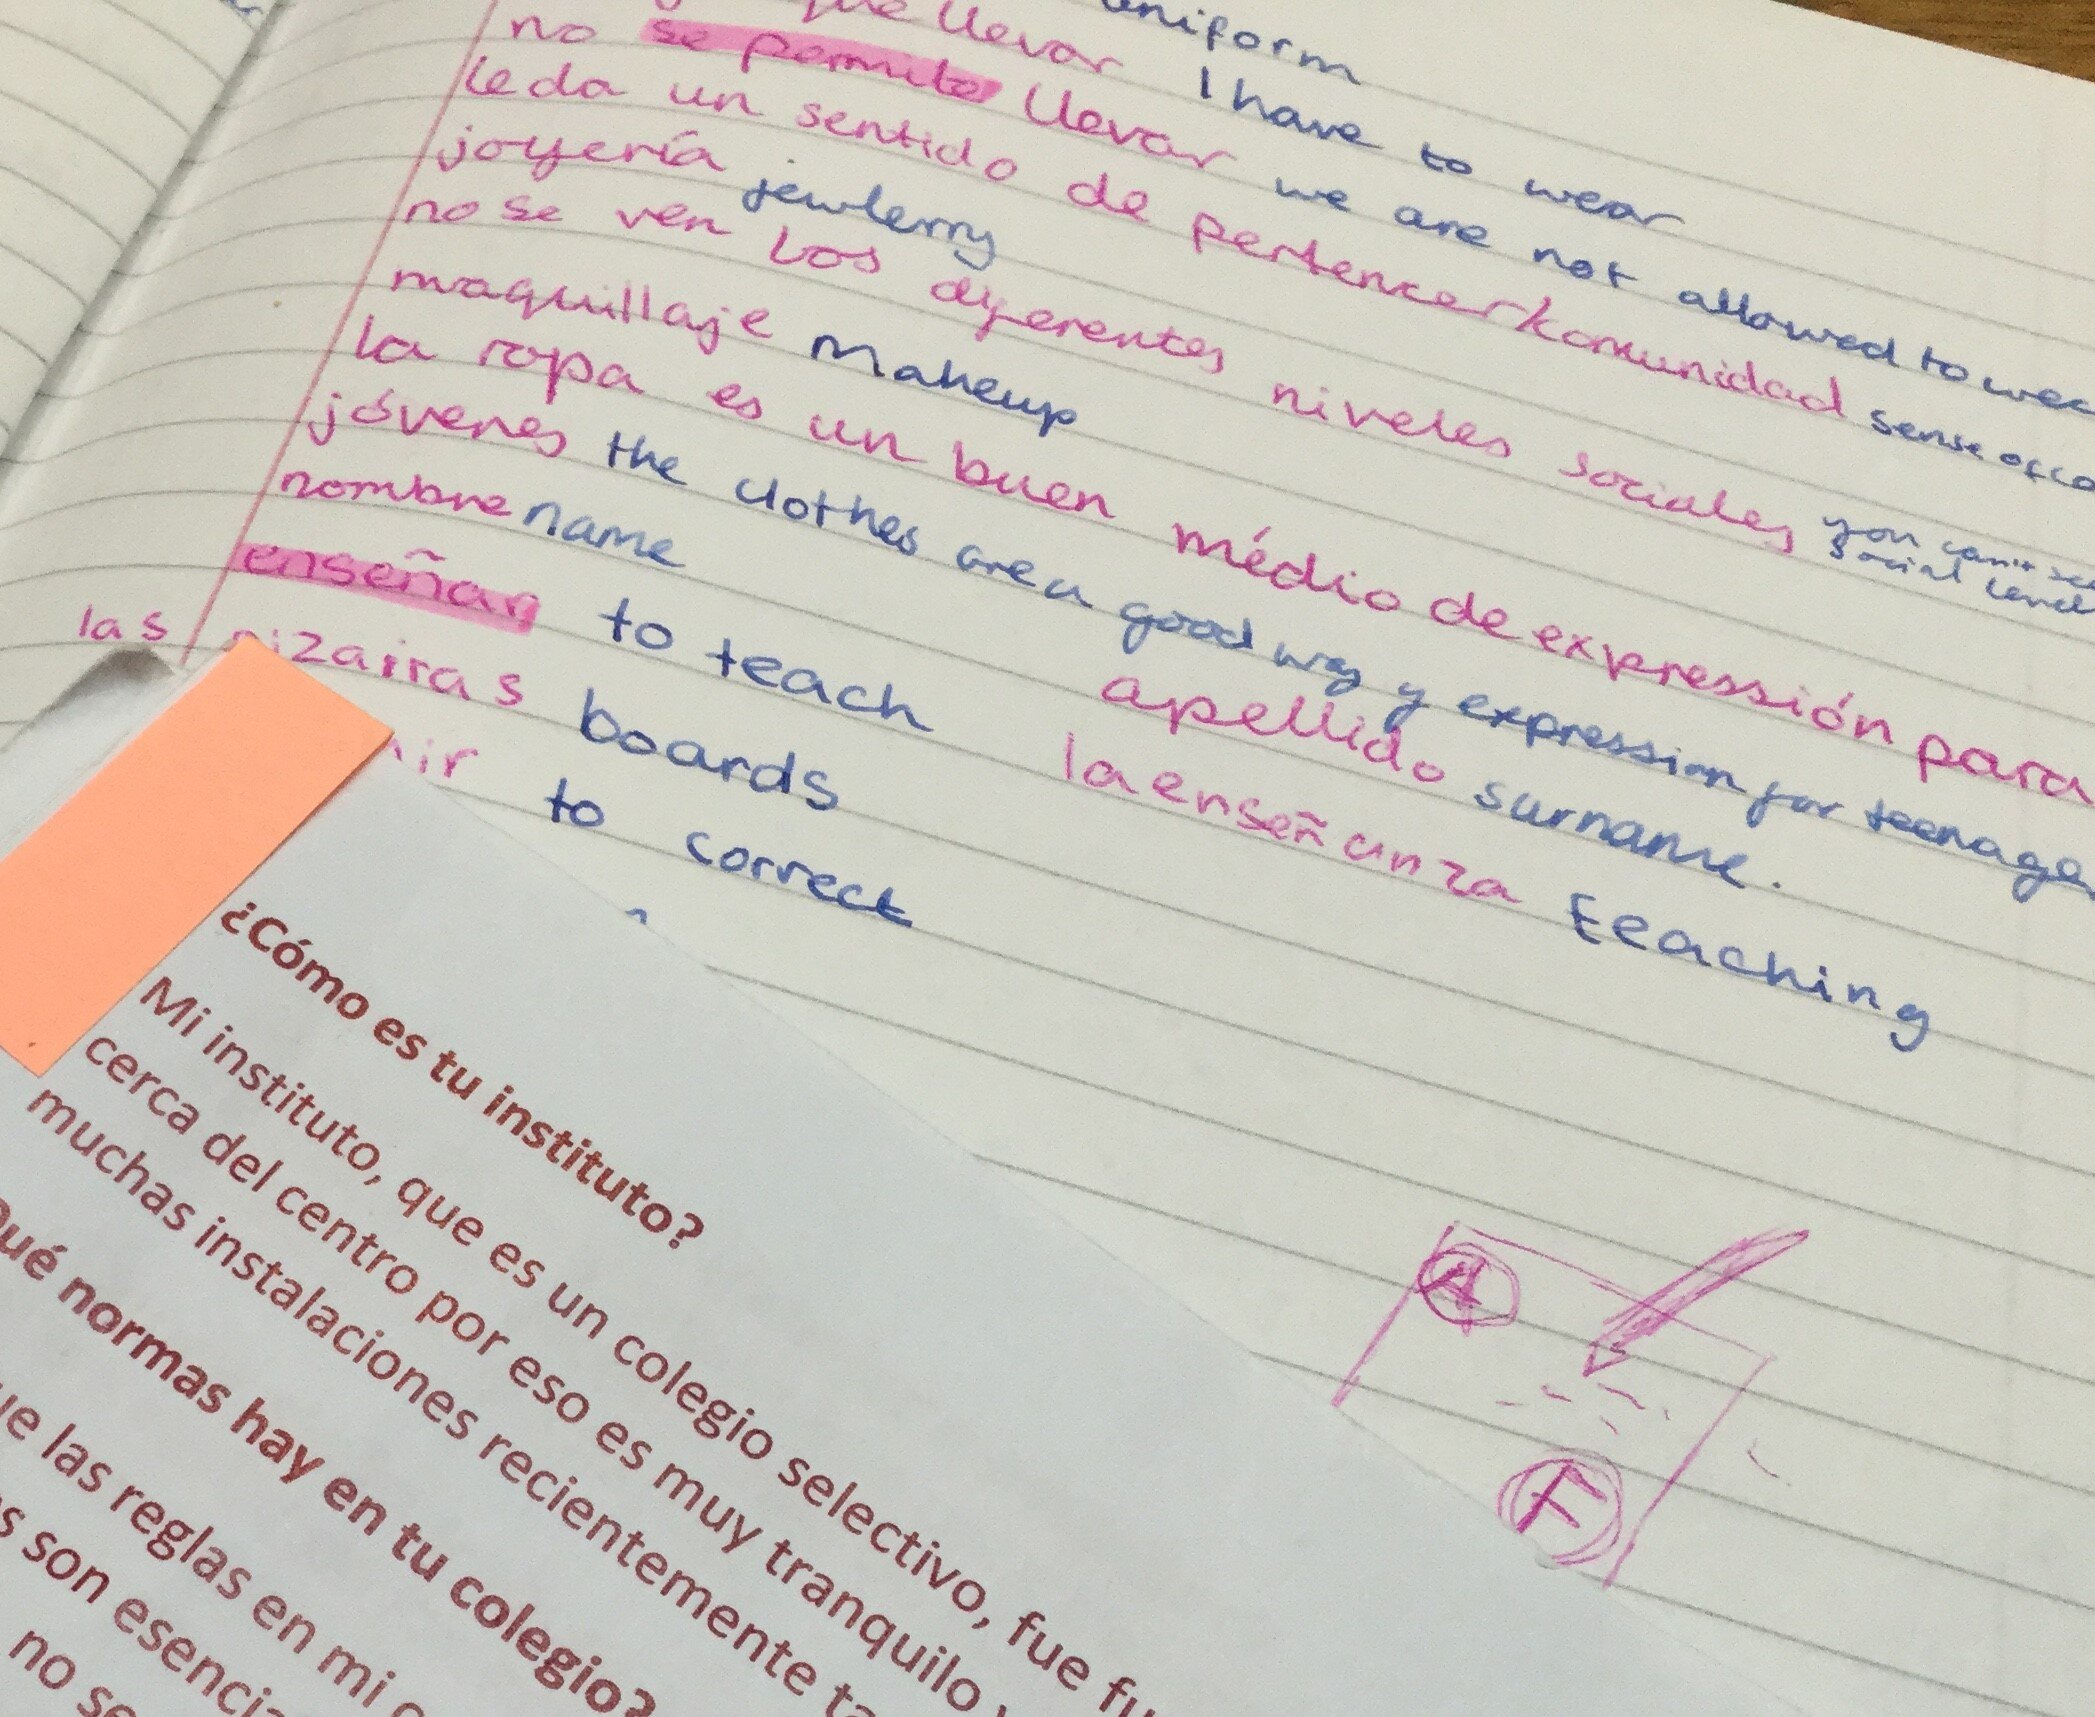 uniform
que llevar I have to wear
no se permite llevar we are not allowed to wea
le da un sentido de pertencerkomunidad sense of co
joyería jewlerry
no se ven los diferentes niveles sociales you can't see
social level
maquillaje Makeup
la ropa es un buen médio de expressión para
jóvenes the clothes are a good way y expression for teenage
nombre name apellido surname.
enseñar to teach la enseñanza teaching
las pizarras boards
ir to correct
¿Cómo es tu instituto?
Mi instituto, que es un colegio selectivo, fue fu
cerca del centro por eso es muy tranquilo
muchas instalaciones recientemente ta
Qué normas hay en tu colegio?
ue las reglas en mi c
s son esencia
no se
A
F